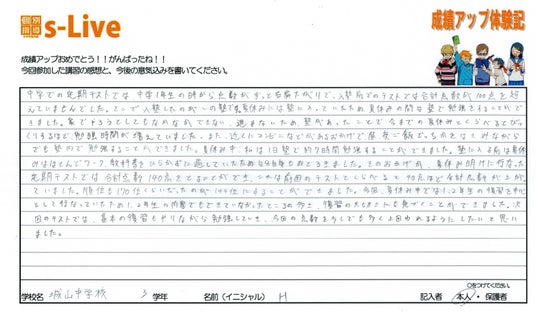 個別指導 s-Live
成績アップ体験記
成績アップおめでとう！！がんばったね！！
今回参加した講習の感想と、今後の意気込みを書いてください。
中学での定期テストでは中学1年生の時から点数がずっと右肩下がりで、入塾前でのテストでは合計点数が100点を超
えていませんでした。そこで入塾したのが
夏休みの間は塾で勉強をすることがで
きました。家でやろうとしてもなかなかできない
進まないため、塾があったことで今までの夏休みとくらべるとび
っくりするほど勉強時間が増えていました。また、近くにコンビニなどがあるおかげで昼食
でも塾ので勉強することができました。夏休み中、私は1日塾で約7時間勉強することができました。塾に入る前は夏休み
のほとんどでワーク、教科書をひらかずに過していたため
おどろきました。そのおかげか、夏休み明けに行なった
定期テストでは合計点数190点をとることができ、これは前回のテストとくらべると90点ほど合計点数が上が
っていました。順位も170位くらいだったのが140位にすることができました。今回、夏休み中では1、2年生の復習を中心
として行なっていたため、1、2年生の内容でもできていなかったところの多さ、復習の大切さにも気づくことができました。次
回のテストでは、基本の復習もやりながら勉強していき、今回の点数を少しでも多く上回われるようにしたいと思い
ました。
○をつけてください。
学校名 城山中学校 3 学年 名前（イニシャル） H 記入者 本人・保護者